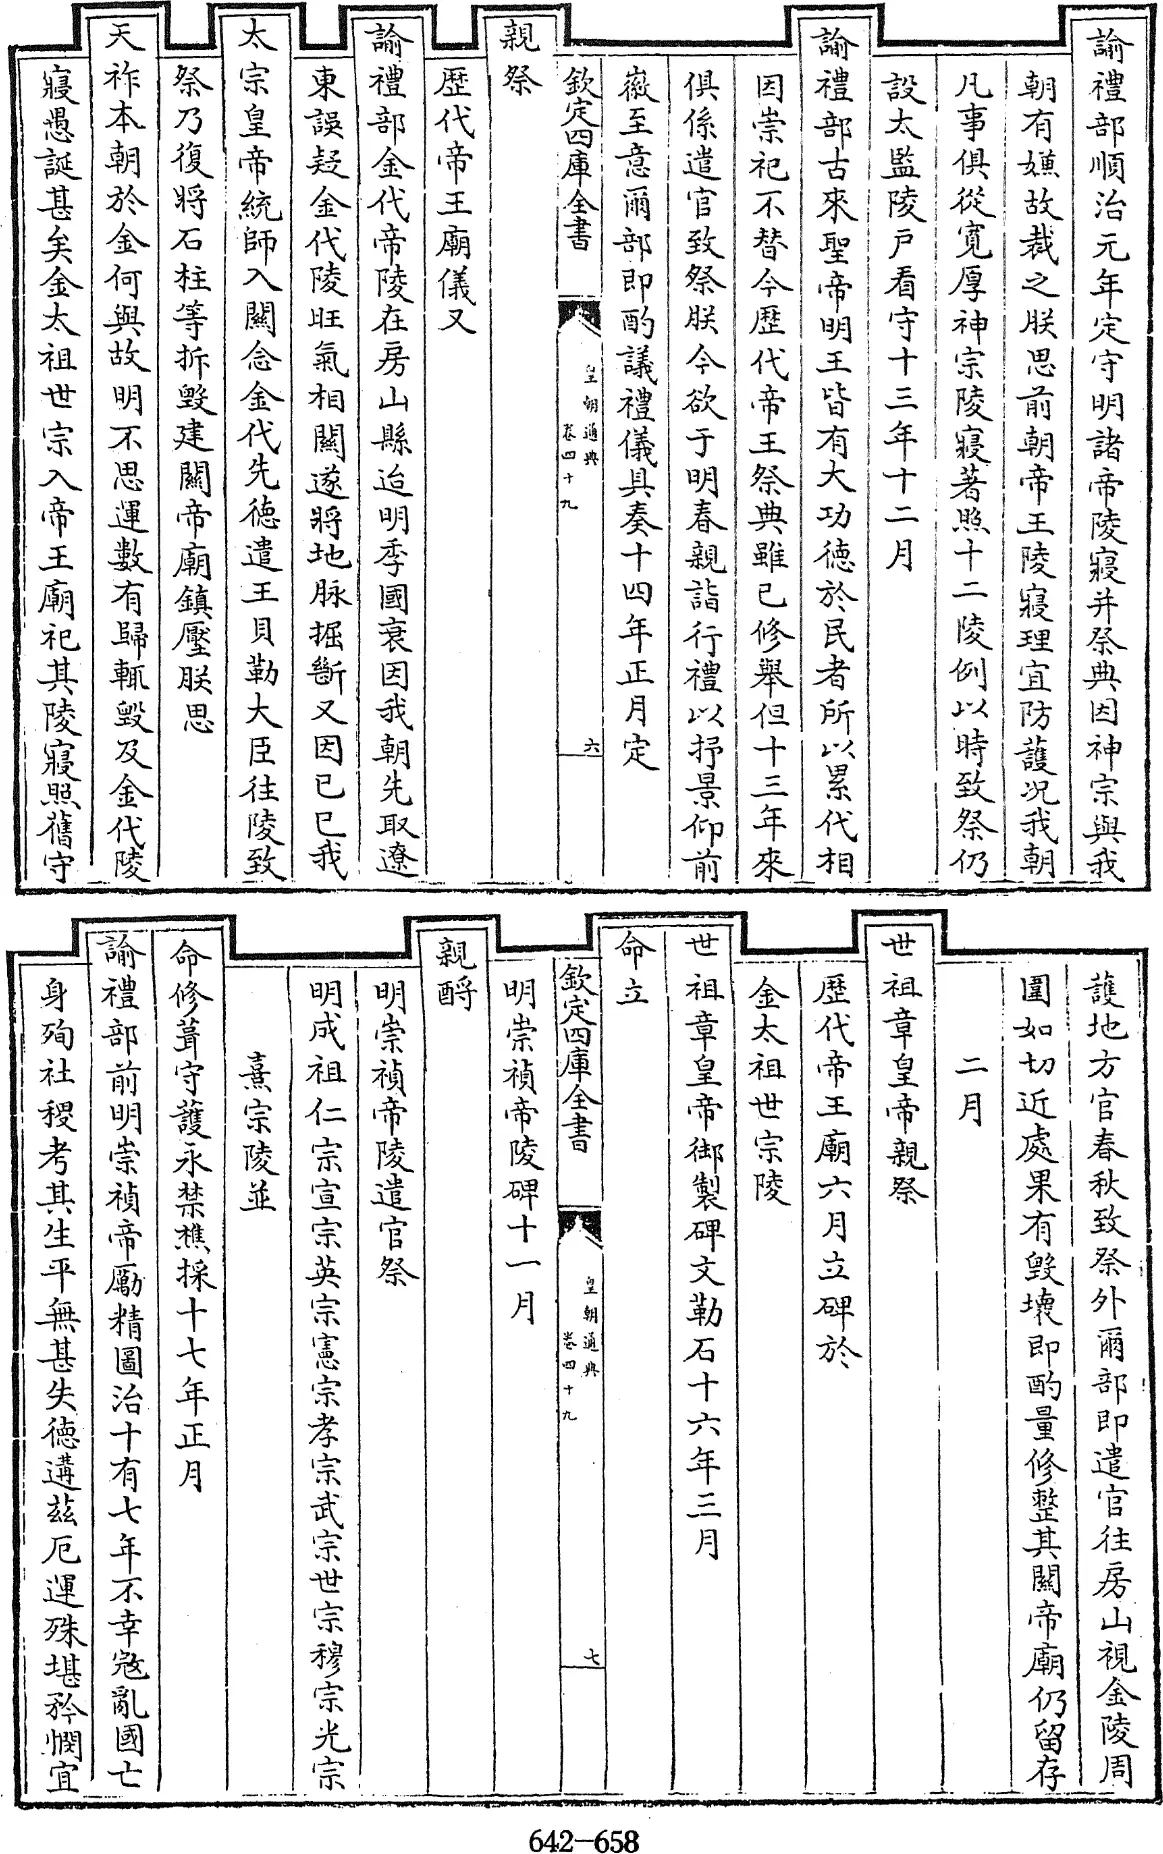 諭禮部順治元年定守明諸帝陵寢并祭典因神宗與我
朝有嫌故裁之朕思前朝帝王陵寢理宜防護况我朝
凡事俱從寬厚神宗陵寢著照十二陵例以時致祭仍
設太監陵戸看守十三年十二月
諭禮部古來聖帝明王皆有大功德於民者所以累代相
因崇祀不替今歷代帝王祭典雖已修舉但十三年來
俱係遣官致祭朕今欲于明春親詣行禮以抒景仰前
徽至意爾部即酌議禮儀具奏十四年正月定
欽定四庫全書
皇朝通典
卷四十九
六
親祭
歷代帝王廟儀又
諭禮部金代帝陵在房山縣迨明季國衰因我朝先取遼
東誤疑金代陵旺氣相關遂將地脉掘斷又因已巳我
太宗皇帝統師入關念金代先德遣王貝勒大臣往陵致
祭乃復將石柱等拆毀建關帝廟鎮壓朕思
天祚本朝於金何與故明不思運數有歸輒毀及金代陵
寢愚誕甚矣金太祖世宗入帝王廟祀其陵寢照舊守
護地方官春秋致祭外爾部即遣官往房山視金陵周
圍如切近處果有毀壞即酌量修整其關帝廟仍留存
二月
世祖章皇帝親祭
歷代帝王廟六月立碑於
金太祖世宗陵
世祖章皇帝御製碑文勒石十六年三月
命立
欽定四庫全書
皇朝通典
卷四十九
七
明崇禎帝陵碑十一月
親酹
明崇禎帝陵遣官祭
明成祖仁宗宣宗英宗憲宗孝宗武宗世宗穆宗光宗
熹宗陵並
命修葺守護永禁樵採十七年正月
諭禮部前明崇禎帝勵精圖治十有七年不幸寇亂國亡
身殉社稷考其生平無甚失德遘兹厄運殊堪矜憫宜
642-658